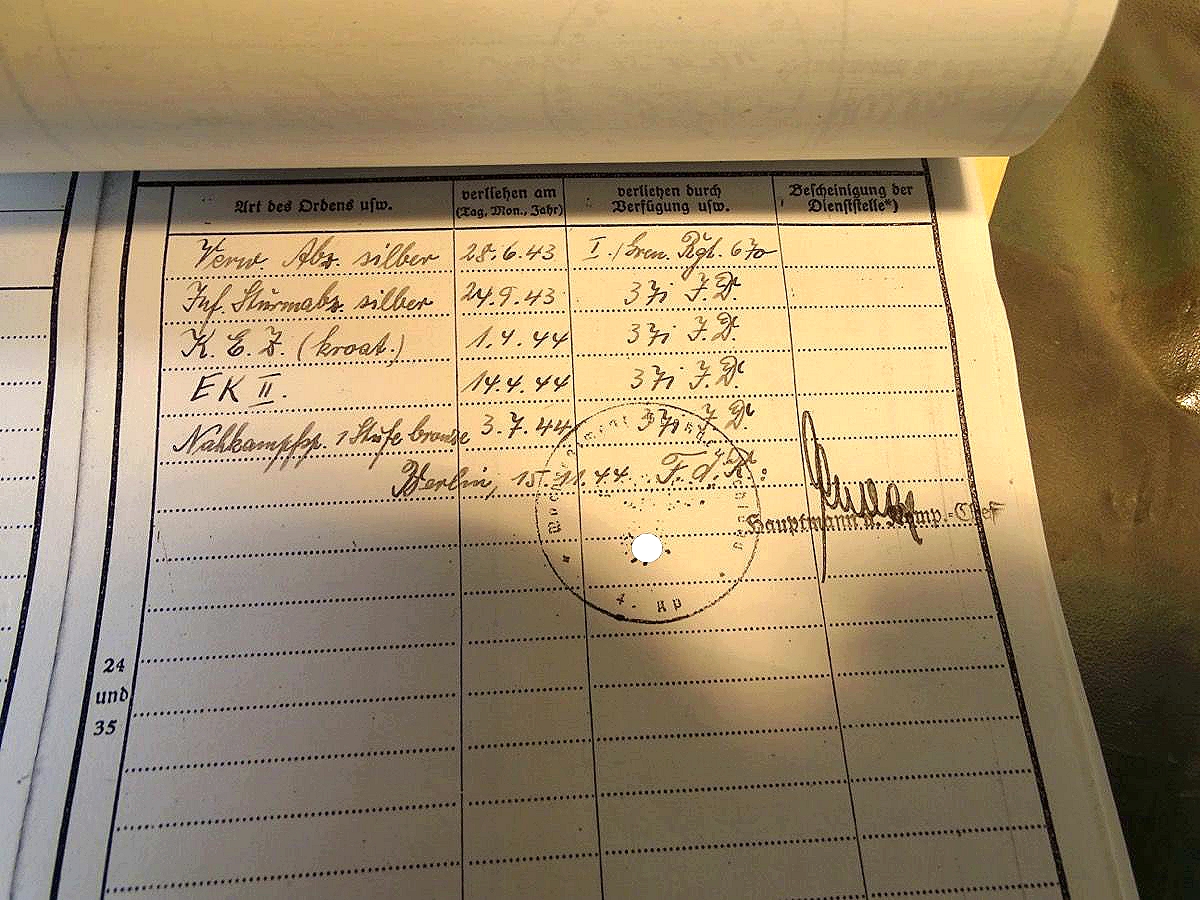 Art des Ordens usw.
verliehen am
(Tag, Mon., Jahr)
verliehen durch
Verfügung usw.
Bescheinigung der
Dienststelle*)
Verw. Abz. silber 28.6.43 I./Gren. Rgt. 670
Inf. Sturmabz. silber 24.9.43 371 J.D.
K. E. Z. (kroat.) 1.4.44 371 J.D.
EK II. 14.4.44 371 J.D.
Nahkampfsp. 1 Stufe bronze 3.7.44 371 J.D.
Berlin, 15.11.44 F.d.R.:
Hauptmann u. Komp.-Chef
4. Kp
24
und
35